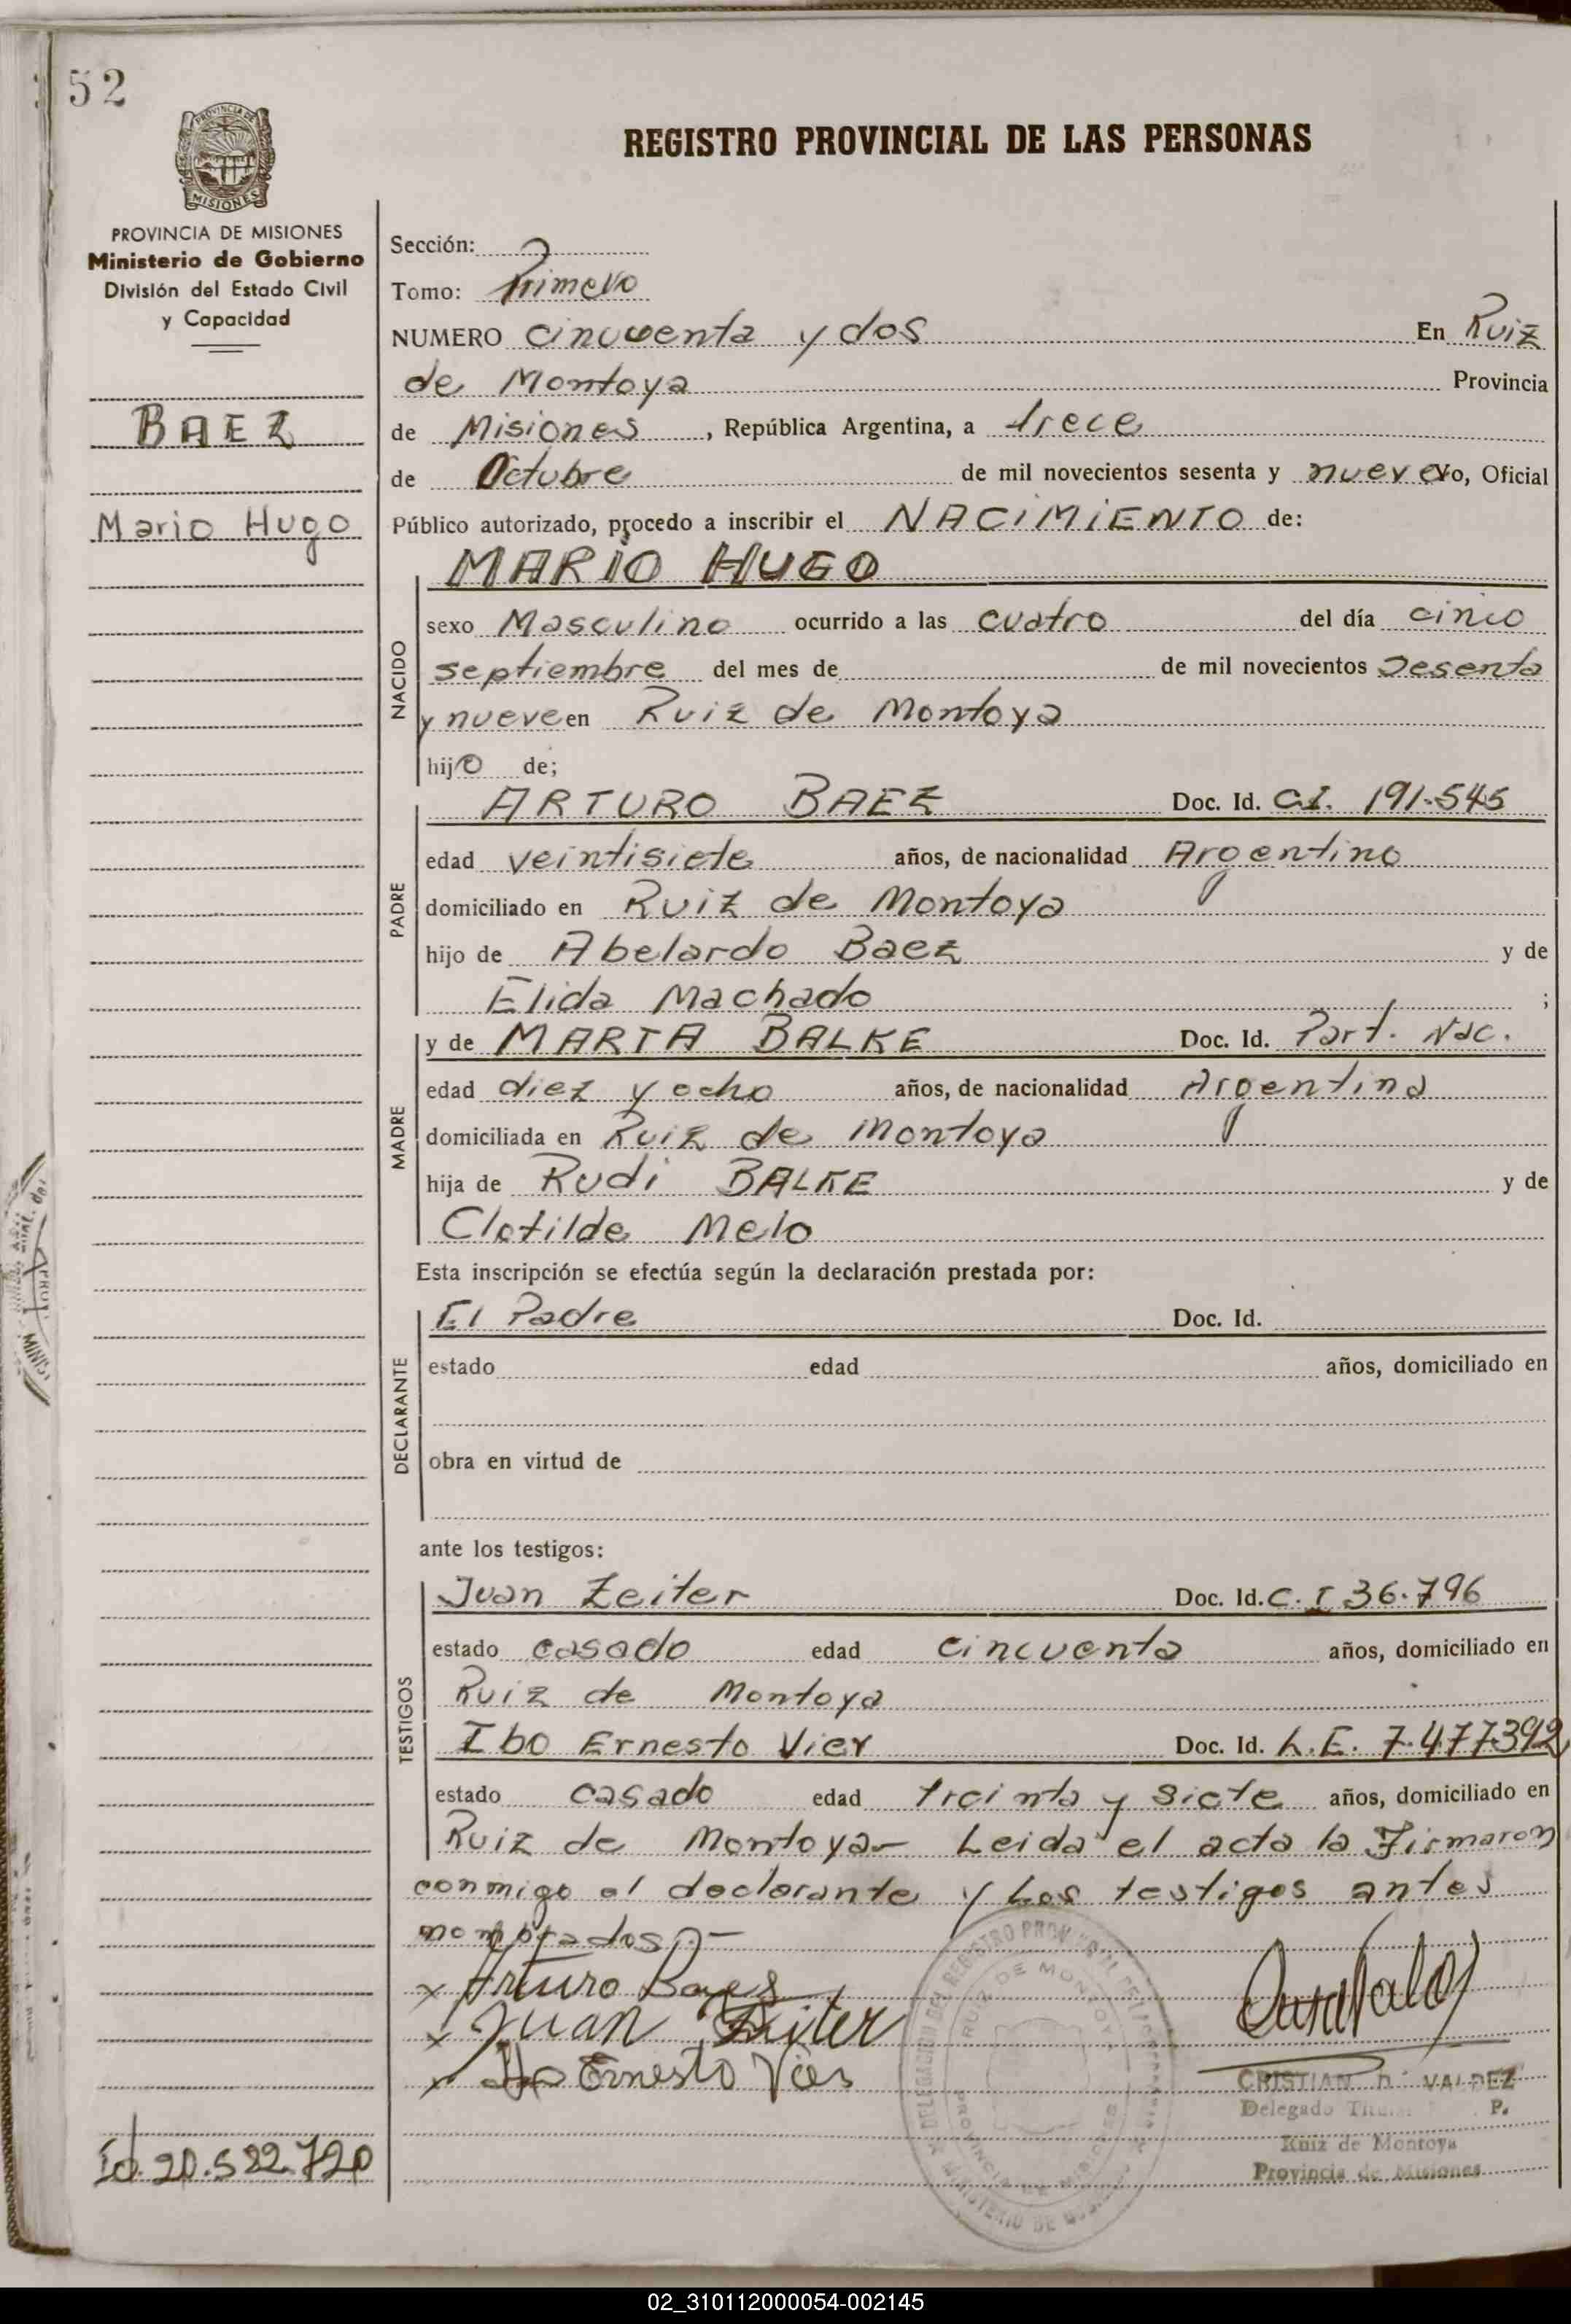 52
PROVINCIA DE MISIONES
MISIONES
PROVINCIA DE MISIONES
Ministerio de Gobierno
División del Estado Civil
y Capacidad
BAEZ
Mario Hugo
Id. 20.522.720
REGISTRO PROVINCIAL DE LAS PERSONAS
Sección:
Tomo: Primero
NUMERO cincuenta y dos En Ruiz
de Montoya Provincia
de Misiones, República Argentina, a trece
de Octubre de mil novecientos sesenta y nueve yo, Oficial
Público autorizado, procedo a inscribir el NACIMIENTO de:
MARIO HUGO
NACIDO
sexo Masculino ocurrido a las cuatro del día cinco
septiembre del mes de de mil novecientos sesenta
y nueve en Ruiz de Montoya
hijo de;
PADRE
ARTURO BAEZ Doc. Id. C.I. 191.545
edad veintisiete años, de nacionalidad Argentino
domiciliado en Ruiz de Montoya
hijo de Abelardo Baez y de
Elida Machado ;
MADRE
y de MARTA BALKE Doc. Id. Part. Nac.
edad diez y ocho años, de nacionalidad Argentina
domiciliada en Ruiz de Montoya
hija de Rudi BALKE y de
Clotilde Melo
Esta inscripción se efectúa según la declaración prestada por:
DECLARANTE
El Padre Doc. Id.
estado edad años, domiciliado en
obra en virtud de
ante los testigos:
TESTIGOS
Juan Zeiter Doc. Id. C.I 36.796
estado casado edad cincuenta años, domiciliado en
Ruiz de Montoya
Ibo Ernesto Vier Doc. Id. L.E. 7.477.392
estado casado edad treinta y siete años, domiciliado en
Ruiz de Montoya- Leida el acta la Firmaron
conmigo el declarante y Los testigos antes
nombrados.-
x Arturo Baes
x Juan Zeiter
x Ibo Ernesto Vier
RUIZ DE MONTOYA
PROVINCIA DE MISIONES
CRISTIAN D. VALDEZ
Delegado P.
Ruiz de Montoya
Provincia de Misiones
02_310112000054-002145